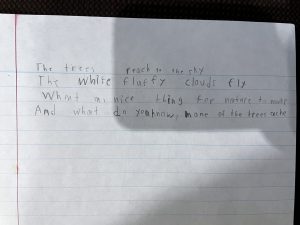 The trees reach to the sky
The white fluffy clouds fly
What a nice thing for nature to make
And what do you know, none of the trees